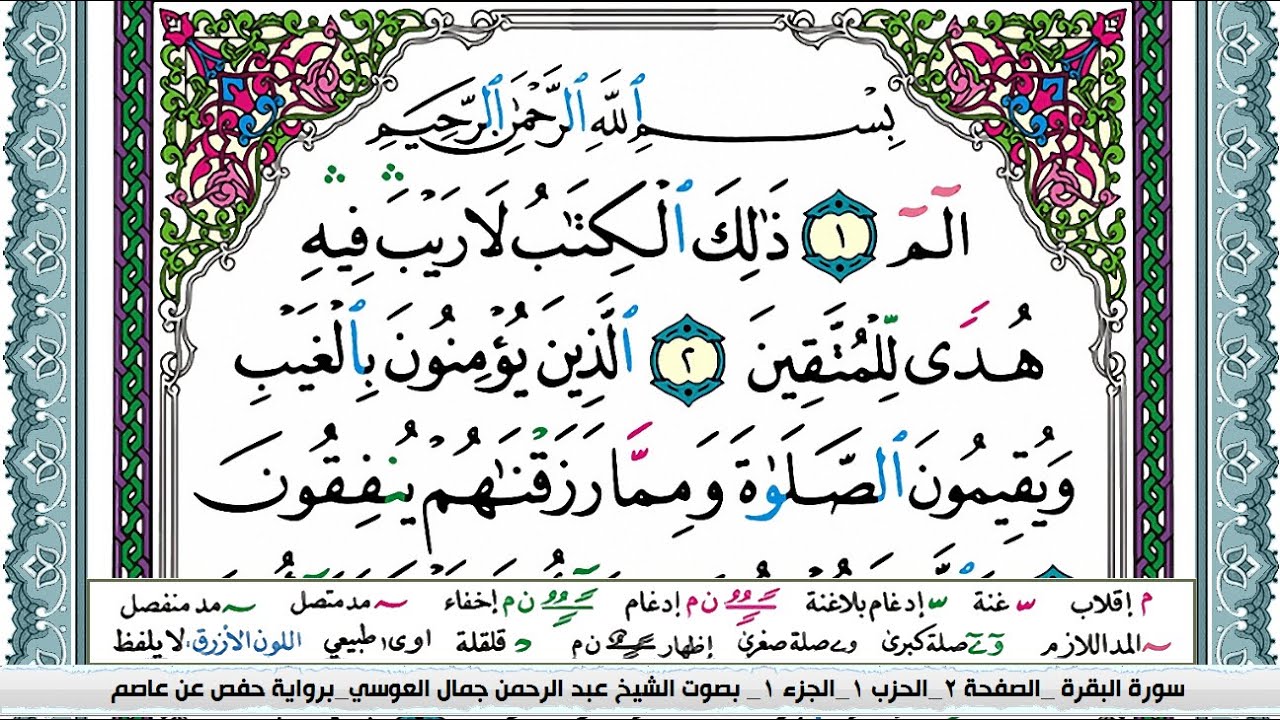 بِسْمِ ٱللَّهِ ٱلرَّحْمَٰنِ ٱلرَّحِيمِ
الٓمٓ ١ ذَٰلِكَ ٱلْكِتَٰبُ لَا رَيْبَ ۛ فِيهِ ۛ
هُدًى لِّلْمُتَّقِينَ ٢ ٱلَّذِينَ يُؤْمِنُونَ بِٱلْغَيْبِ
وَيُقِيمُونَ ٱلصَّلَوٰةَ وَمِمَّا رَزَقْنَٰهُمْ يُنفِقُونَ
م إقلاب غنة إدغام بلاغنة ن م إدغام ن م إخفاء مد متصل مد منفصل
المد اللازم صلة كبرى صلة صغرى إظهار ن م قلقلة اوى طبيعي اللون الأزرق: لا يلفظ
سورة البقرة _الصفحة ٢_الحزب ١_الجزء ١_ بصوت الشيخ عبد الرحمن جمال العوسي_برواية حفص عن عاصم